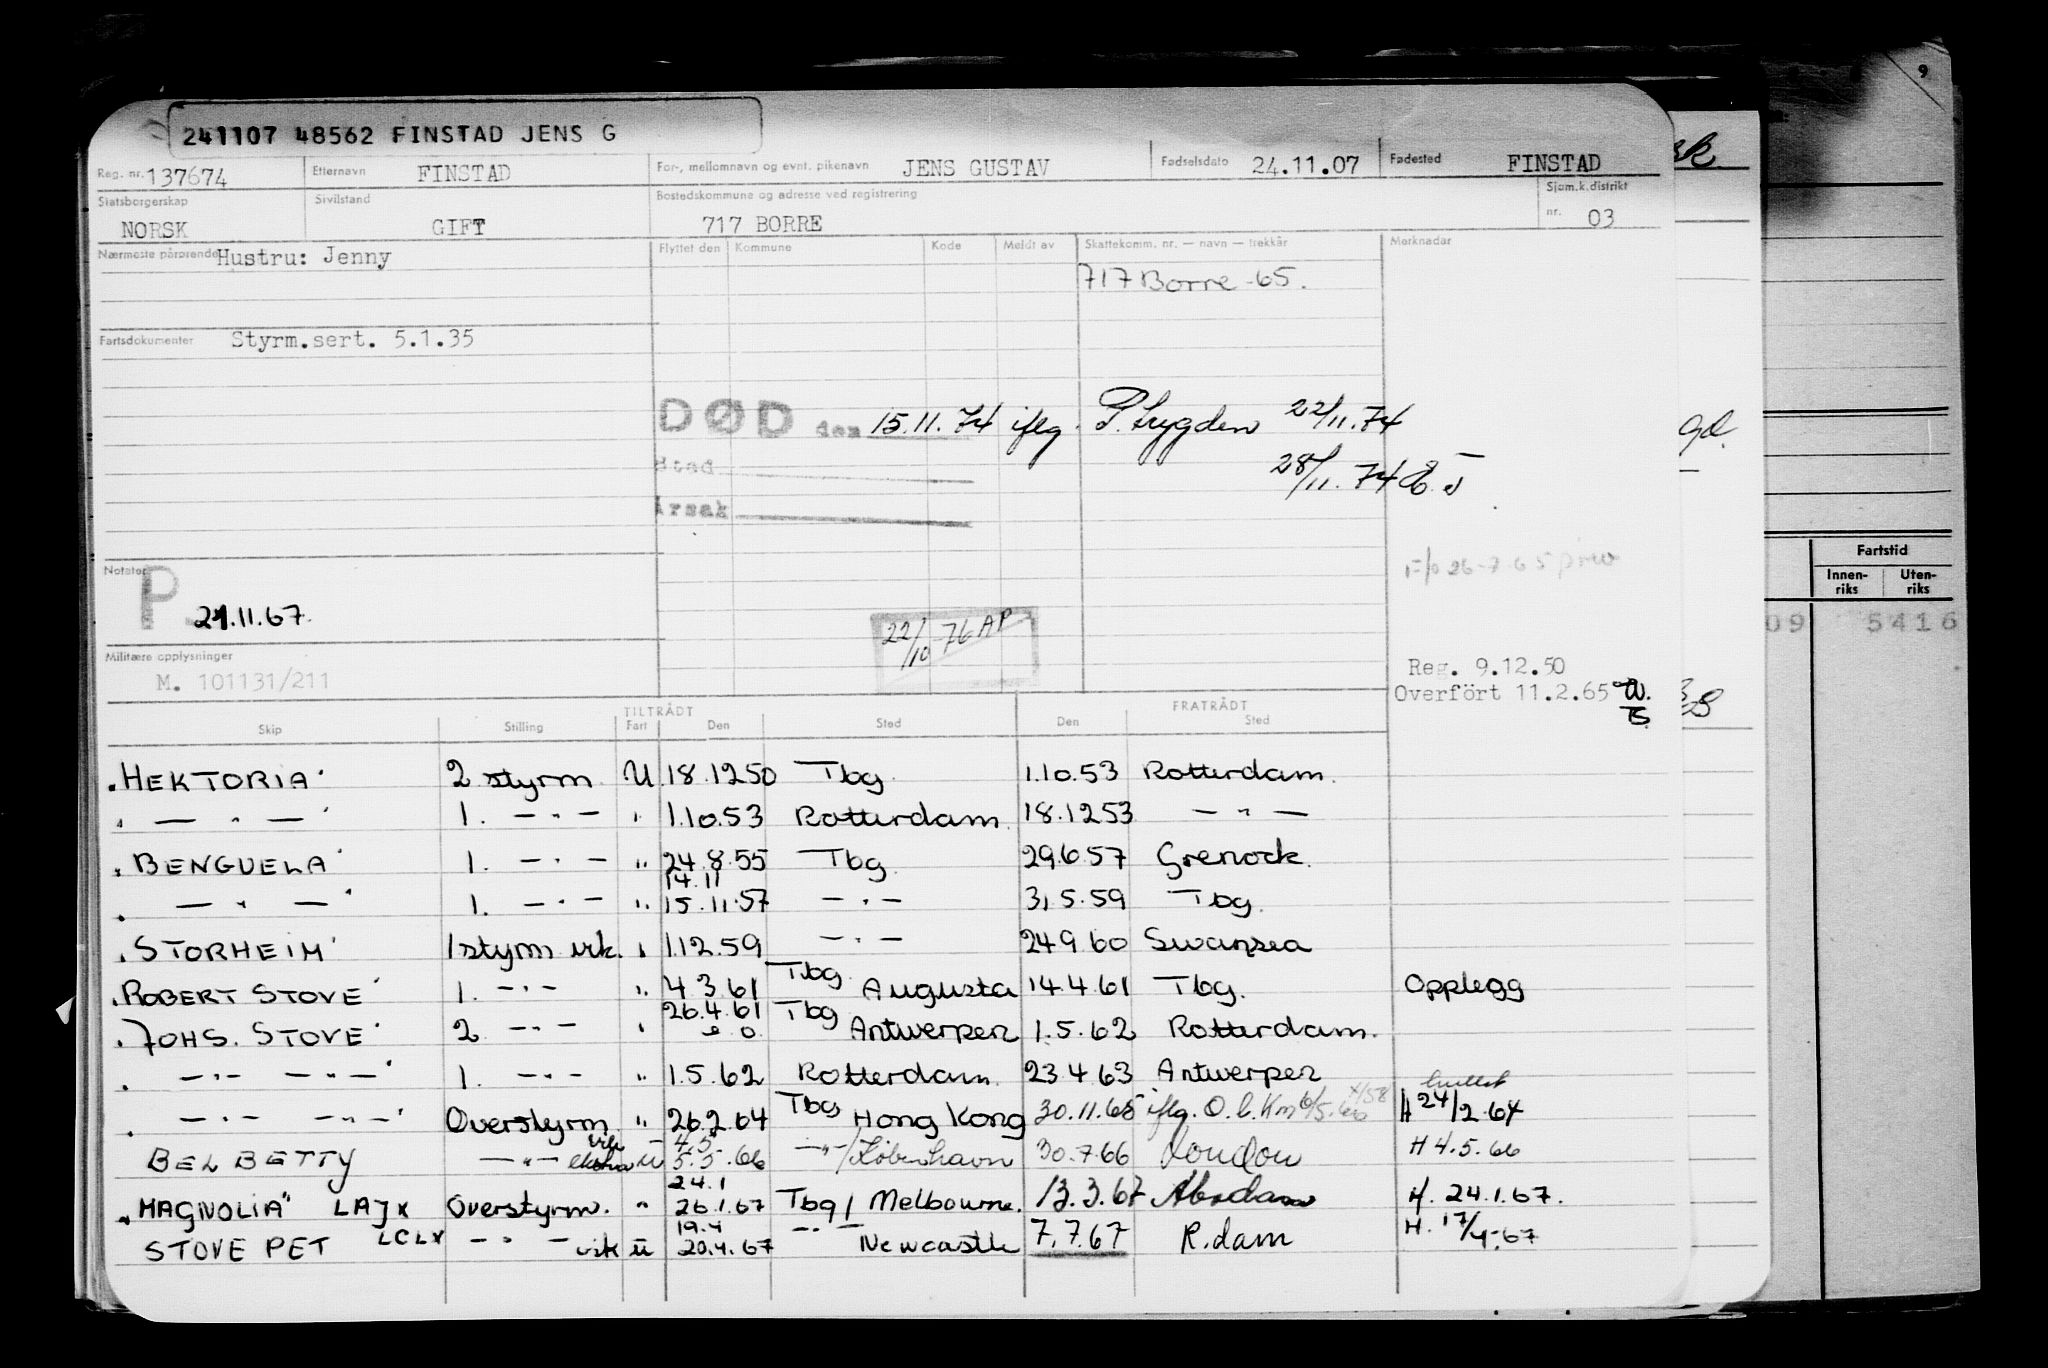 241107 48562 FINSTAD JENS G
Reg. nr. 137674 Etternavn FINSTAD For-, mellomnavn og evnt. pikenavn JENS GUSTAV Fødselsdato 24.11.07 Fødested FINSTAD
Statsborgerskap NORSK Sivilstand GIFT Bostedskommune og adresse ved registrering 717 BORRE Sjøm.k.distrikt nr. 03
Nærmeste pårørende Hustru: Jenny Flyttet den Kommune Kode Meldt av Skattekomm. nr. — navn — trekkår Merknader
717 Borre -65.
Fartsdokumenter Styrm.sert. 5.1.35
DØD den 15.11.74 iflg. P. 22/11.74
Sted 28/11.74
Årsak
26-7-65
Notater P 21.11.67.
22/10-76 AP
Militære opplysninger
M. 101131/211
Reg. 9.12.50
Overfört 11.2.65
TILTRÅDT FRATRÅDT
Skip Stilling Fart Den Sted Den Sted
"HEKTORIA" 2 styrm. U 18.1250 Tbg. 1.10.53 Rotterdam.
" — " — " 1. — " — " 1.10.53 Rotterdam. 18.1253 — " —
"BENGUELA" 1. — " — " 24.8.55 Tbg. 29.6.57 Grenock.
14.11
" — " — " 1. — " — " 15.11.57 — " — 31.5.59 Tbg.
"STORHEIM" 1styrm. vik. " 1.12.59 — " — 24.9.60 Swansea
"ROBERT STOVE" 1. — " — " 4.3.61 Tbg. Augusta 14.4.61 Tbg. Opplegg
"JOHS. STOVE" 2 — " — " 26.4.61 Tbg Antwerpen 1.5.62 Rotterdam.
" — " — — " — " 1. — " — " 1.5.62 Rotterdam. 23.4.63 Antwerpen
" — " — — " — " Overstyrm. " 26.2.64 Tbg Hong Kong 30.11.65 iflg. H 24/2.64
4.5
BELBETTY — " — ekstra U 5.5.66 — " — / København 30.7.66 London H 4.5.66
24.1
"MAGNOLIA" LAJX Overstyrm. " 26.1.67 Tbg / Melbourne. 13.3.67 H. 24.1.67.
19.4
STOVE PET LCLX — " — vik U 20.4.67 — " — Newcastle 7.7.67 R.dam H. 17/4-67
9
Fartstid
Innenriks Utenriks
09 5416